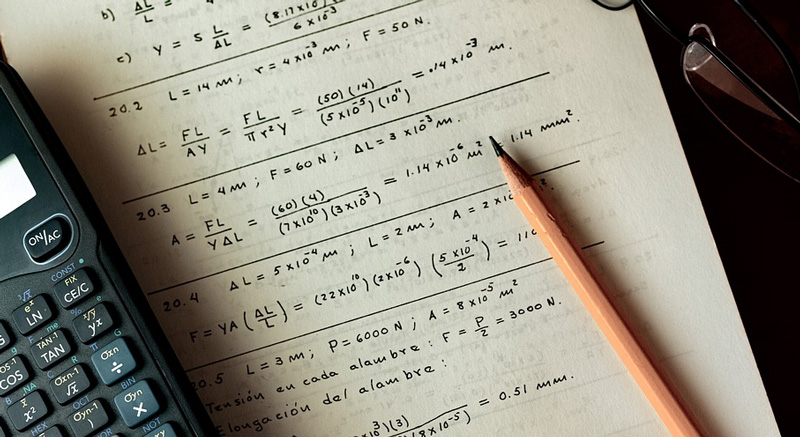 b) ΔL/L =
c) Y = 5 L/ΔL = (8.17×10 / 6×10⁻³
20.2 L = 14 m ; r = 4×10⁻³ m ; F = 50 N.
ΔL = FL/AY = FL/πr²Y = (50)(14)/(5×10⁻⁵)(10¹¹) = .14×10⁻³ m.
20.3 L = 4 m ; F = 60 N ; ΔL = 3×10⁻³ m.
A = FL/YΔL = (60)(4)/(7×10¹⁰)(3×10⁻³) = 1.14×10⁻⁶ m² = 1.14 mm².
20.4 ΔL = 5×10⁻⁴ m ; L = 2 m ; A = 2×10
F = YA (ΔL/L) = (22×10¹⁰)(2×10⁻⁶) (5×10⁻⁴/2) = 110
20.5 L = 3 m ; P = 6000 N ; A = 8×10⁻⁵ m²
Tensión en cada alambre : F = P/2 = 3000 N.
Elongación del alambre :
×10³)(3)/(8×10⁻⁵) = 0.51 mm.
ON/AC
CONST
FIX
CE/C
eˣ
LN
TAN⁻¹
TAN
yˣ
COS
σxn
÷
σxn-1
√x
x²
BIN
σyn-1
σyn
×
NOT